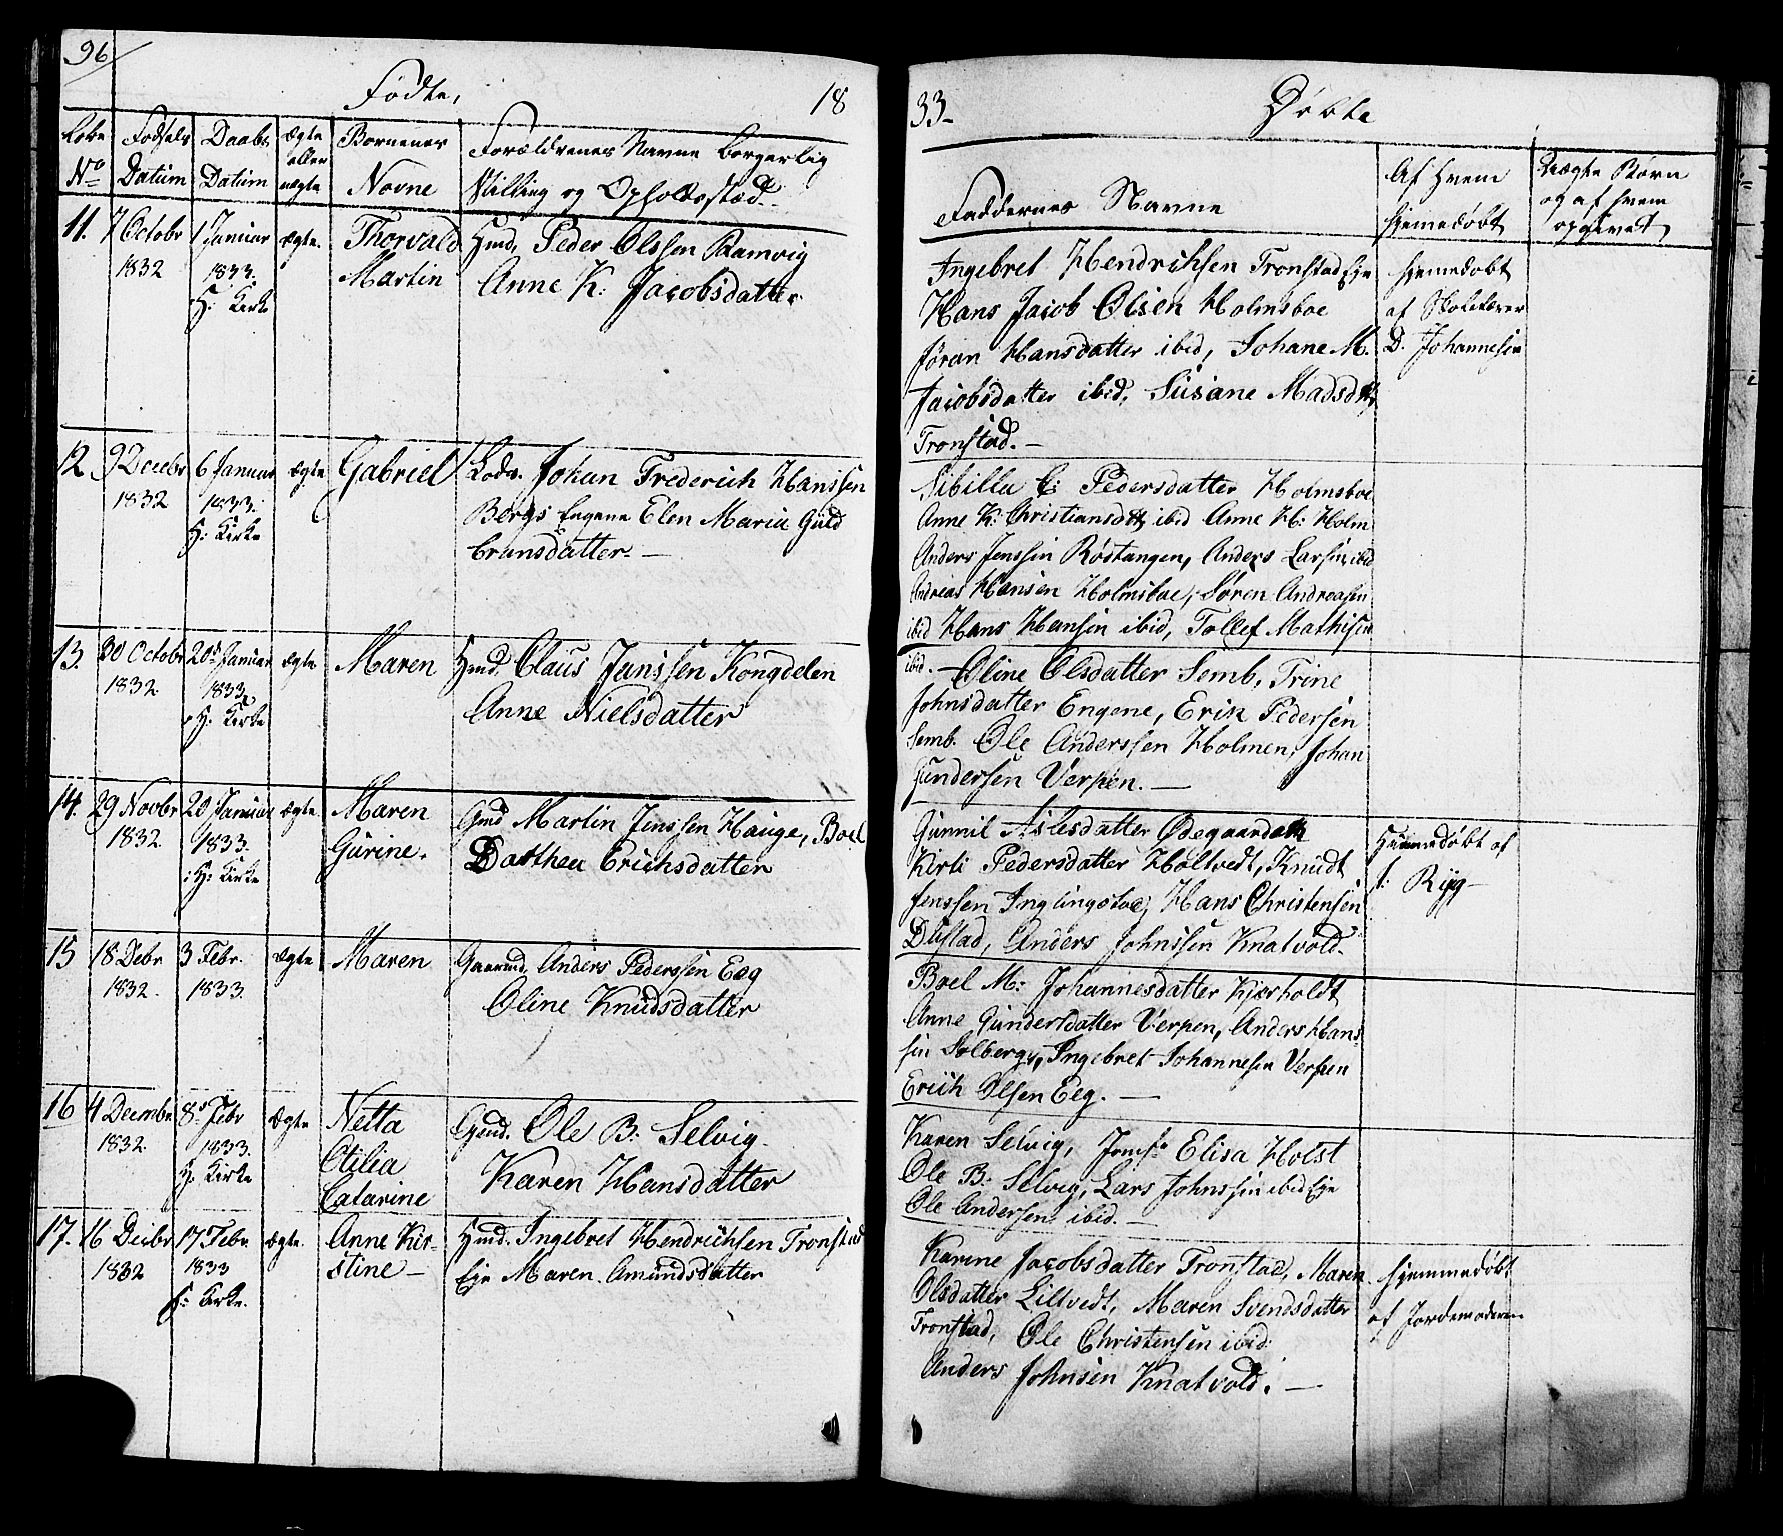 96
Fødte,
18
Løbe Fødsels Daabs Ægte Børnenes Forældrenes Navne borgerlig
eller
No Datum Datum uægte Navne Stilling og Opholdsstæd.
11. 7 Octobr 1 Januar ægte. Thorvald Hmd. Peder Olssen Ramvig
1832 1833. Martin Anne K: Jacobsdatter
H: Kirke
12. 9 Decebr 6 Januar ægte Gabriel Lods. Johan Frederich Hanssen
1832 1833. Bergs Engene Elen Maria Guld
H: Kirke bransdatter. —
13. 30 Octobr 20de Januar ægte. Maren Hmd. Claus Janssen Kongdelen
1832 1833. Anne Nielsdatter
H: Kirke
14. 29 Novbr 20 Januar ægte. Maren Gmd Martin Jenssen Hauge, Boel
1832. 1833. Gurine. Dorthea Erichsdatter
H: Kirke
15 18 Debr 3 Febr. Ægte Maren Gaarmd. Anders Pederssen Eeg
1832. 1833. Oline Knudsdatter
16 4 Decmbr 8de Febr Ægte Netta Gmd. Ole B: Selvig.
1832 1833. Otilia Karen Hansdatter
H: Kirke Catarine
17. 16 Decbr 17 Febr. ægte. Anne Kir- Hmd. Ingebret Hendrichsen Tronstad
1832 1833 stine — Eje Maren Amundsdatter
H: Kirke.
33.
Døbte
Faddernes Navne
Af hvem
hjemedøbt
Uægte Børn
og af hvem
opgivet
Ingebret Hendrichsen Tronstad Eje hjemedøbt
Hans Jacob Olsen Holmsboe af Skolelærer
Jøran Hansdatter ibid, Johane M. D. Johannesen
Jacobsdatter ibid, Susane Madsdttr
Tronstad. —
Sibilla C: Pedersdatter Holmsboe
Anne K: Christiansdttr ibid Anne H: Holm
Anders Jenssen Rødtangen, Anders Larsen ibid
Andreas Hansen Holmsboe, Søren Andreasen
ibid Hans Hansen ibid, Tollef Mathisen
ibid. — Oline Olsdatter Semb, Trine
Johnsdatter Engene, Erik Pedersen
Semb. Ole Anderssen Holmen, Johan
Gundersen Verpen. —
Gunnil Aslesdatter Ødegaarden Hjemmedøbt af
Kirti Pedersdatter Holtvedt, Knudt
Jenssen Inglingstad, Hans Christensen
Dlystad, Anders Johnssen Knatvold.
Boel M: Johannesdatter Kjærholdt
Anne Gundersdatter Verpen, Anders Hans-
sen Solberg, Ingebret Johannesen Verpen
Erich Olsen Eeg. —
Karen Selvig, Jomf. Elisa Holst
Ole B: Selvig, Lars Johnssen ibid Eje
Ole Andersen ibid. —
Karine Jacobsdatter Tronstad, Maren hjemmedøbt
Olsdatter Liltvedt, Maren Svendsdatter af Jordemoderen
Tronstad, Ole Christensen ibid:
Anders Johnsen Knatvold. —